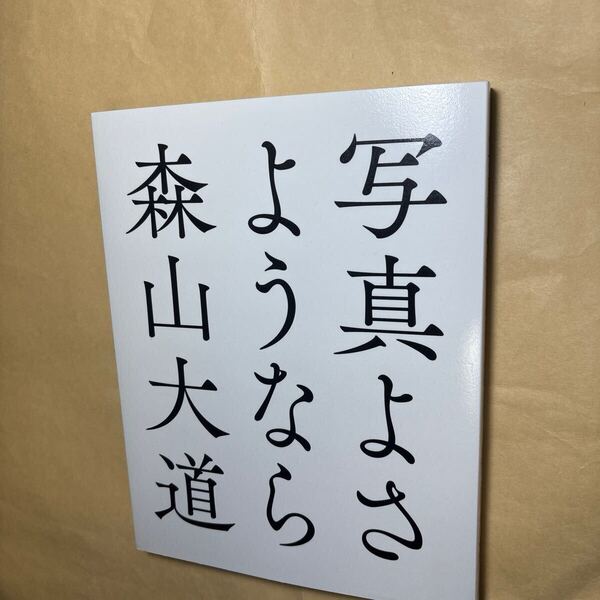 写真よさ
ようなら
森山大道